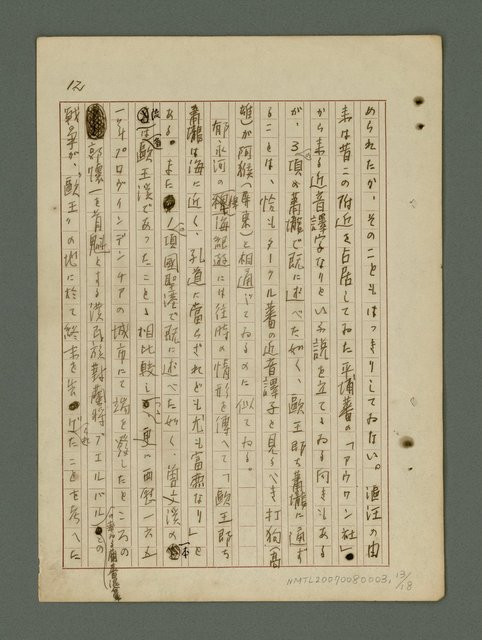 12
められたか、そのこともはっきりしてゐない。滬汪の由
来は昔この附近を占居してゐた平埔蕃の「アウワン社」
から来る近音譯字なりといふ説を立てゝゐる向きもある
が、3項の蕭壠で既に述べた如く、歐王即ち蕭壠に通ず
ることは、恰もタークル蕃の近音譯字と見るべき打狗（高
雄）が阿猴（屏東）と相通じてゐるのに似てゐる。
郁永河の裨海紀遊には往時の情形を傳へて「歐王即ち
蕭壠は海に近く、孔道に當らざれども尤も富庶なり」と
ある。また1項國聖港で既に述べた如く曾文溪の
本流は歐王溪であったことゝ相比較し、更に西暦一六五
一年プロヴィンデンチアの城市にて端を發したところの
郭懐一を首魁とする漢民族對蘭將デエルバルとの
戰爭が、歐王の地に於て終末を告げたことを考へた
NMTL20070080003, 13/18